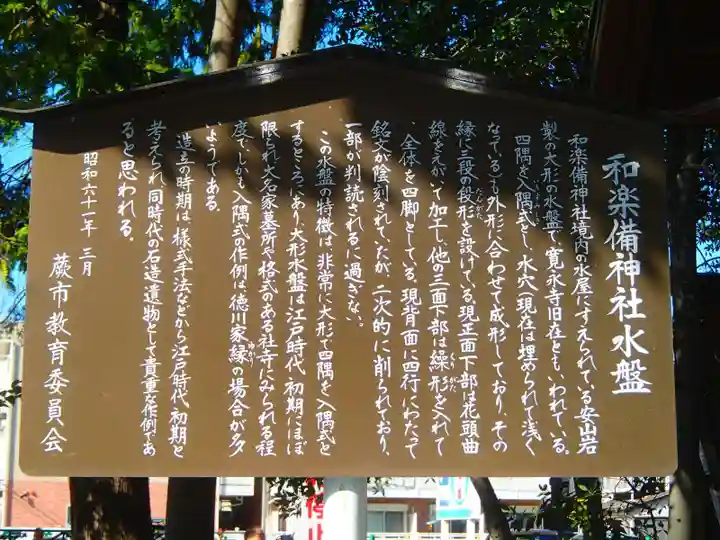 和楽備神社水盤
和楽備神社境内の水屋にすえられている安山岩
製の大形の水盤で、寛永寺旧在ともいわれている。
四隅を入隅式とし、水穴(現在は埋められて浅く
なっている)も外形に合わせて成形しており、その
縁に二段の段形を設けている。現正面下部は花頭曲
線をえがいて加干し、他の三面下部は繰形を入れて
全体を四脚としている。現背面に四行にわたって
銘文が陰刻されていたが、二次的に削られており、
一部が判読されるに過ぎない。
この水盤の特徴は、非常に大形で四隅を入隅式と
するところにあり、大形水盤は江戸時代初期にほぼ
限られ、大名家墓所や格式のある社寺にみられる程
度で、しかも入隅式の作例は徳川家縁の場合が多
いようである。
造立の時期は、様式手法などから江戸時代初期と
考えられ、同時代の石造遺物として貴重な作例であ
ると思われる。
昭和六十一年三月
蕨市教育委員会
停止